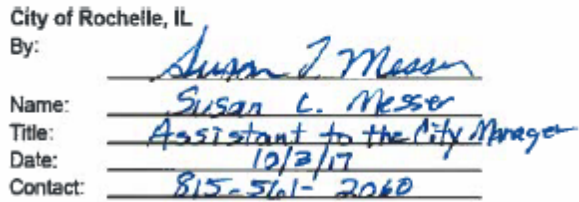 City of Rochelle, IL
By: Susan L Messer
Name: Susan L. Messer
Title: Assistant to the City Manager
Date: 10/3/17
Contact: 815-561-2060